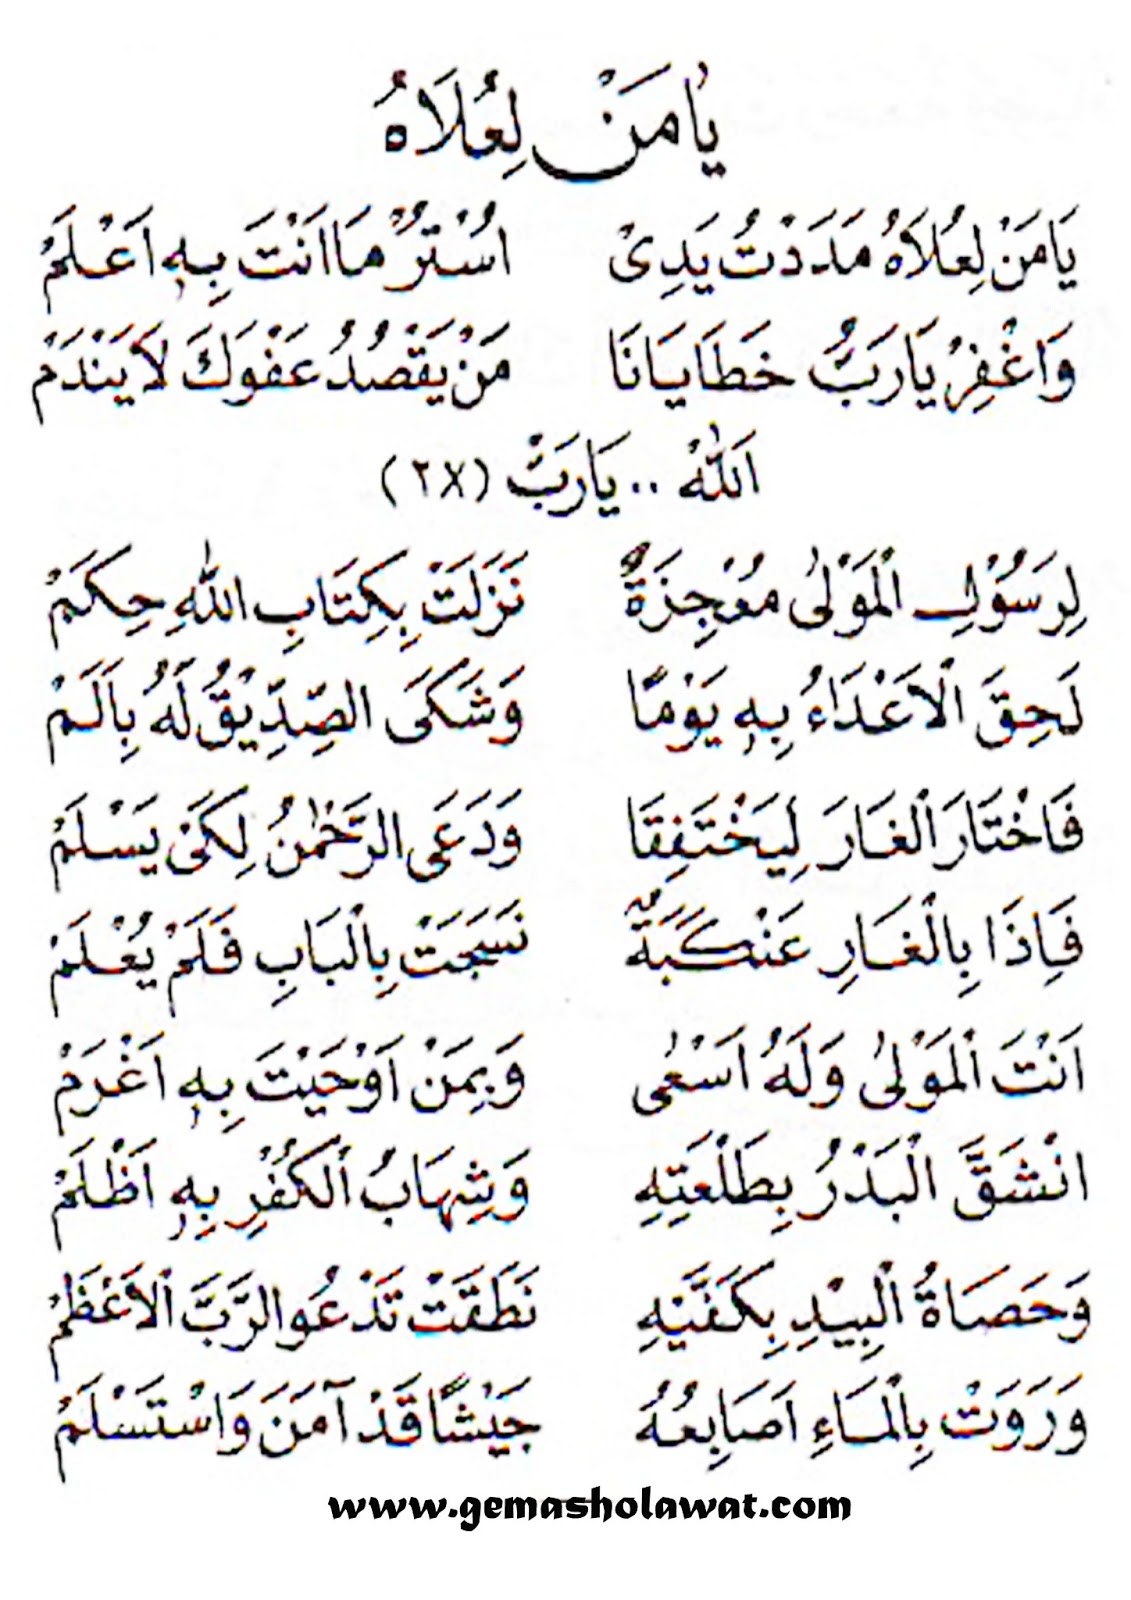 يَا مَنْ لِعُلَاهُ
يَامَنْ لِعُلَاهُ مَدَدْتُ يَدِىْ اُسْتُرْ مَا اَنْتَ بِهِ اَعْلَمُ
وَاغْفِرْ يَارَبُّ خَطَايَانَا مَنْ يَقْصُدُ عَفْوَكَ لَا يَنْدَمْ
اَللهْ .. يَارَبّْ (٢X)
لِرَسُوْلِ الْمَوْلٰى مُعْجِزَةٌ نَزَلَتْ بِكِتَابِ اللهِ حِكَمْ
لَحِقَ الْاَعْدَاءُ بِهِ يَوْمًا وَشَكَى الصِّدِّيْقُ لَهُ بِاَلَمْ
فَاخْتَارَ الْغَارَ لِيَخْتَفِقَا وَدَعَى الرَّحْمٰنُ لِكَىْ يَسْلَمْ
فَاِذَا بِالْغَارِ عَنْكَبَةٌ نَسَجَتْ بِالْبَابِ فَلَمْ يُعْلَمْ
اَنْتَ الْمَوْلٰى وَلَهُ اَسْعٰى وَبِمَنْ اَوْحَيْتَ بِهِ اَغْرَمْ
انْشَقَّ الْبَدْرُ بِطَلْعَتِهِ وَشِهَابُ الْكُفْرِ بِهِ اَظْلَمْ
وَحَصَاةُ الْبِيْدِ بِكَفَّيْهِ نَطَقَتْ تَدْعُو الرَّبَّ الْاَعْظَمْ
وَرَوَتْ بِالْمَاءِ اَصَابِعُهُ جَيْشًا قَدْ آمَنَ وَاسْتَسْلَمْ
www.gemasholawat.com